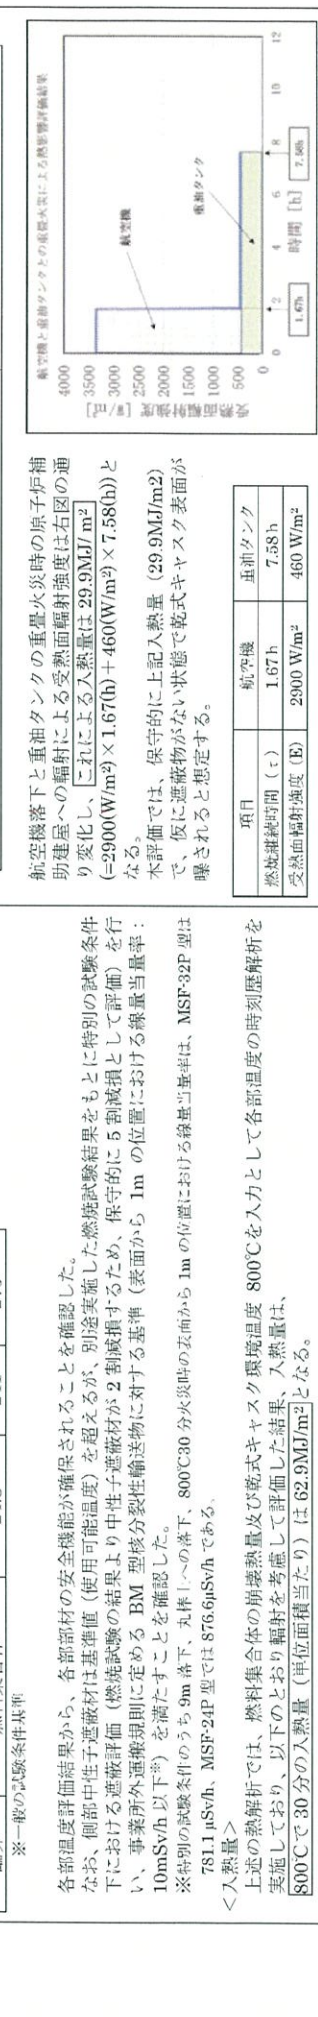 ※一般の試験条件基準
各部温度評価結果から、各部部材の安全機能が確保されることを確認した。
なお、側部中性子遮蔽材は基準値（使用可能温度）を超えるが、別途実施した燃焼試験結果をもとに特別の試験条件
下における遮蔽評価（燃焼試験の結果より中性子遮蔽材が 2 割減損するため、保守的に 5 割減損として評価）を行
い、事業所外運搬規則に定める BM 型核分裂性輸送物に対する基準（表面から 1m の位置における線量当量率：
10mSv/h 以下※）を満たすことを確認した。
※特別の試験条件のうち 9m 落下、丸棒上への落下、800℃30 分火災時の表面から 1m の位置における線量当量率は、MSF-32P 型は
781.1 μSv/h、MSF-24P 型では 876.6μSv/h である。
＜入熱量＞
上述の熱解析では、燃料集合体の崩壊熱量及び乾式キャスク環境温度 800℃を入力として各部温度の時刻歴解析を
実施しており、以下のとおり輻射を考慮して評価した結果、入熱量は、
800℃で 30 分の入熱量（単位面積当たり）は 62.9MJ/m²となる。
航空機落下と重油タンクの重畳火災時の原子炉補
助建屋への輻射による受熱面輻射強度は右図の通
り変化し、これによる入熱量は 29.9MJ/ m²
(=2900(W/m²)×1.67(h)＋460(W/m²)×7.58(h))と
なる。
本評価では、保守的に上記入熱量（29.9MJ/m2）
で、仮に遮蔽物がない状態で乾式キャスク表面が
曝されると想定する。
項目 航空機 重油タンク
燃焼継続時間（τ） 1.67 h 7.58 h
受熱面輻射強度（E） 2900 W/m² 460 W/m²
航空機と重油タンクとの重畳火災による熱影響評価結果
受熱面輻射強度 [W/㎡]
4000
3500
3000
2500
2000
1500
1000
500
0
航空機
重油タンク
0 2 4 6 8 10 12
時間 [h]
1.67h
7.58h